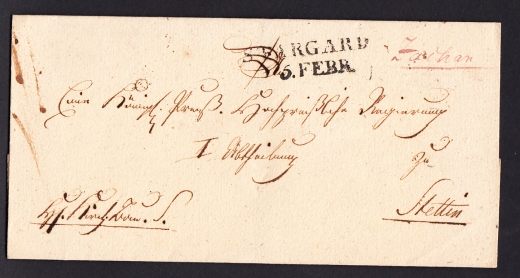 STARGARD
5. FEBR.
Zachan
Eine Königl. Preuß. Hochpreißliche Regierung
I Abtheilung
zu
Stettin